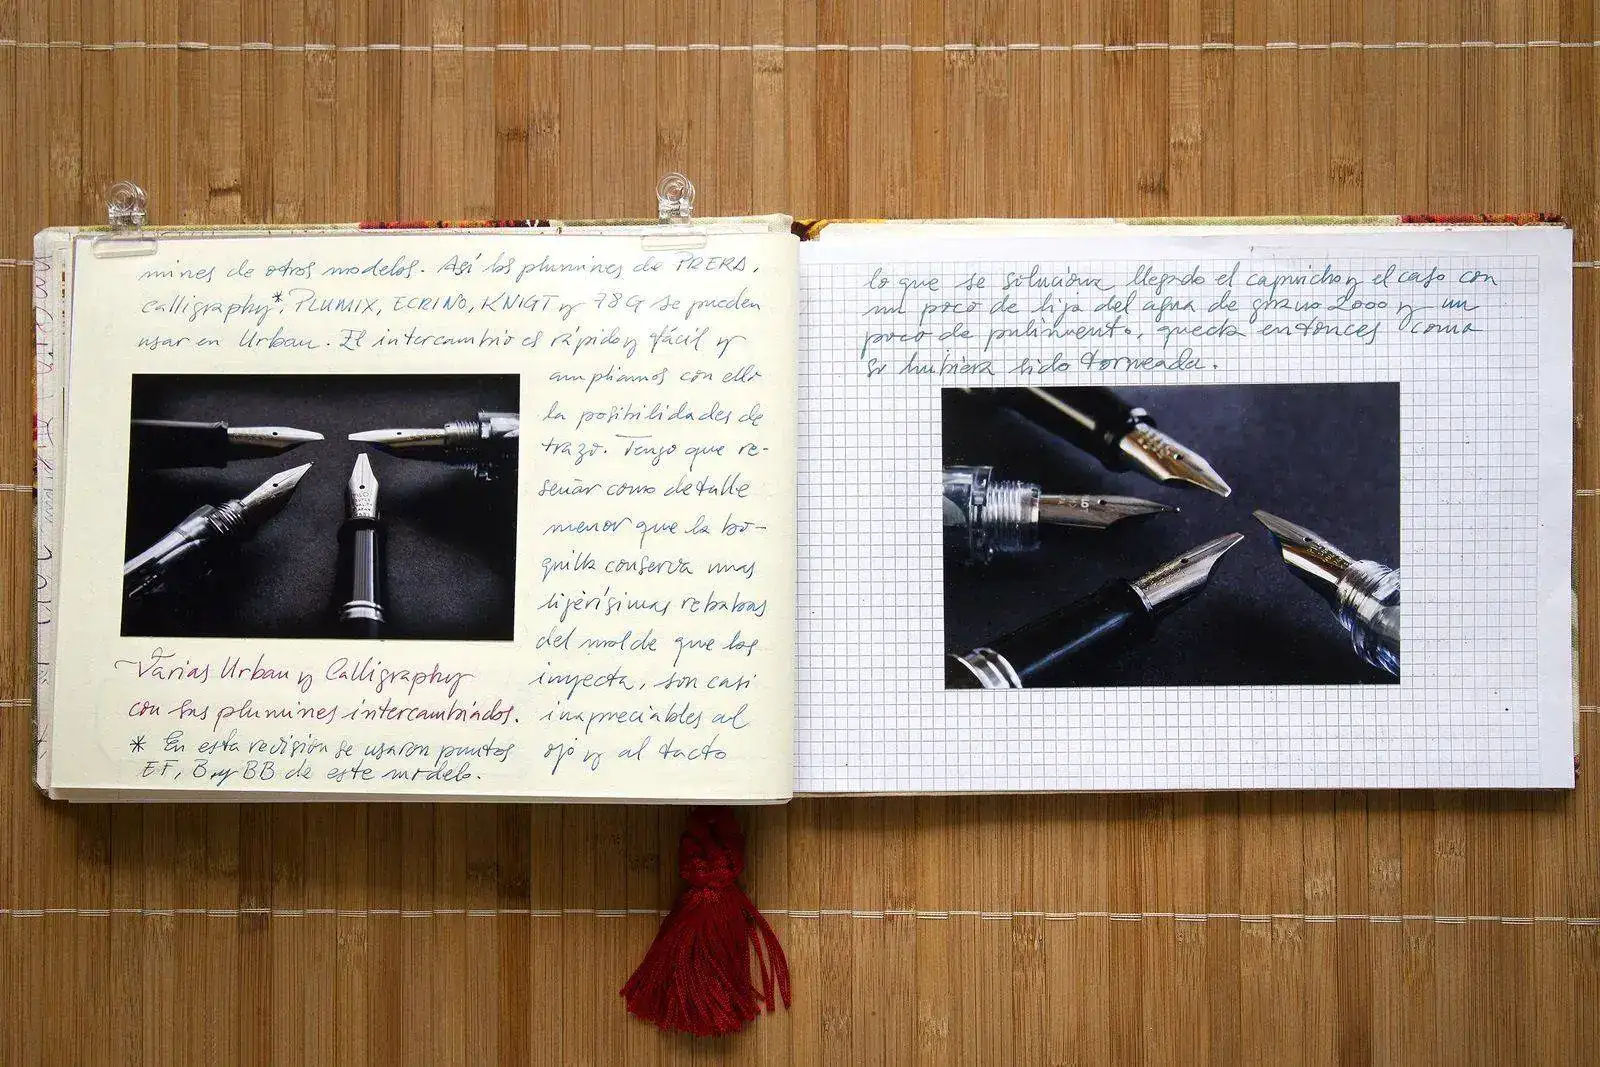 mines de otros modelos. Así los plumines de PRERA,
calligraphy*, PLUMIX, ECRINO, KNIGT y 78G se pueden
usar en Urban. El intercambio es rápido y fácil y
ampliamos con ello
la posibilidades de
trazo. Tengo que re-
señar como detalle
menor que la bo-
quilla conserva unas
lijerísimas rebabas
del molde que los
inyecta, son casi
inapreciables al
ojo y al tacto
Varias Urban y Calligraphy
con sus plumines intercambiados.
* En esta revisión se usaron puntos
EF, B y BB de este modelo.
lo que se soluciona llegado el capricho y el caso con
un poco de lija del agua de grano 2000 y un
poco de pulimento, queda entonces como
si hubiera sido torneada.